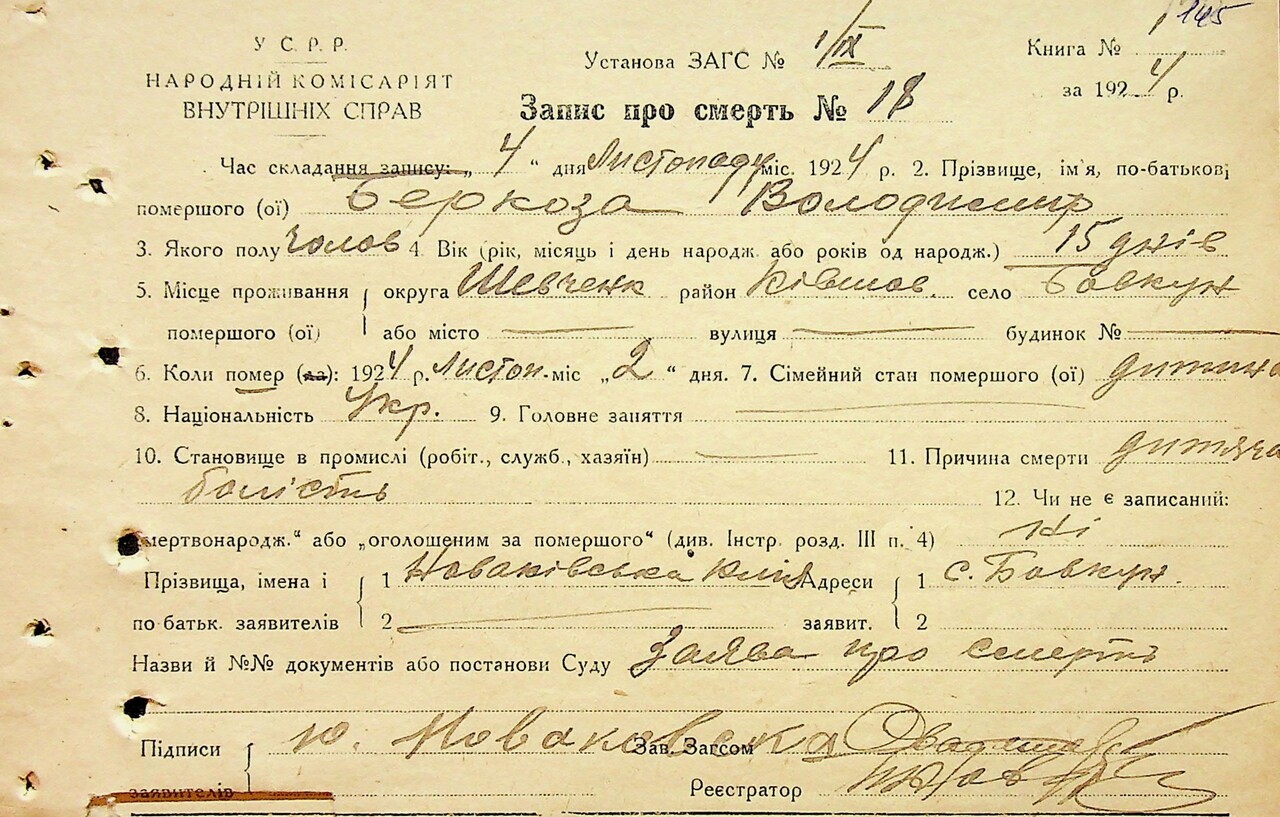 145
У С. Р. Р.
НАРОДНІЙ КОМІСАРІЯТ
ВНУТРІШНІХ СПРАВ
Установа ЗАГС № 1/IX
Книга № 1
за 1924 р.
Запис про смерть № 18
Час складання запису: „ 4 “ дня Листопаду міс. 1924 р. 2. Прізвище, ім'я, по-батькові
помершого (ої) Беркоза Володимир
3. Якого полу чолов 4. Вік (рік, місяць і день народж. або років од народж.) 15 днів
5. Місце проживання округа Шевченк район Ківшов. село Бовкун
помершого (ої) або місто вулиця будинок №
6. Коли помер (ла): 1924 р. Листоп. міс „ 2 “ дня. 7. Сімейний стан помершого (ої) дитина
8. Національність Укр. 9. Головне заняття
10. Становище в промислі (робіт., служб., хазяїн) 11. Причина смерти дитяча
болість 12. Чи не є записаний:
мертвонародж.“ або „оголошеним за помершого“ (див. Інстр. розд. III п. 4) ні
Прізвища, імена і 1 Новаківська Адреси 1 с. Бовкун.
по батьк. заявителів 2 заявит. 2
Назви й №№ документів або постанови Суду Заява про смерть
Підписи Ю. Новаковська Зав. Загсом
заявителів Реєстратор